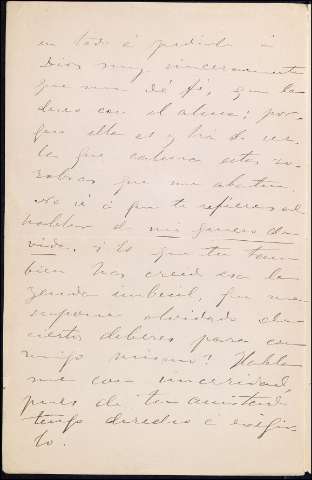 en todo á pedirle á
Dios muy sinceramente
que me dé fé, que la
deseo con el alma; por-
que ella es y há de ser
la que calmara estas zo-
zobras que me abaten.
No sé á que te refieres al
hablar de mi genero de
vida. ¿Es que tu tam-
bien has creido esa le-
yenda imbécil, que me
supone olvidado de
ciertos deberes para con-
migo mismo? Habla
me con sinceridad,
pues de tu amistad
tengo derecho á exigir-
lo.